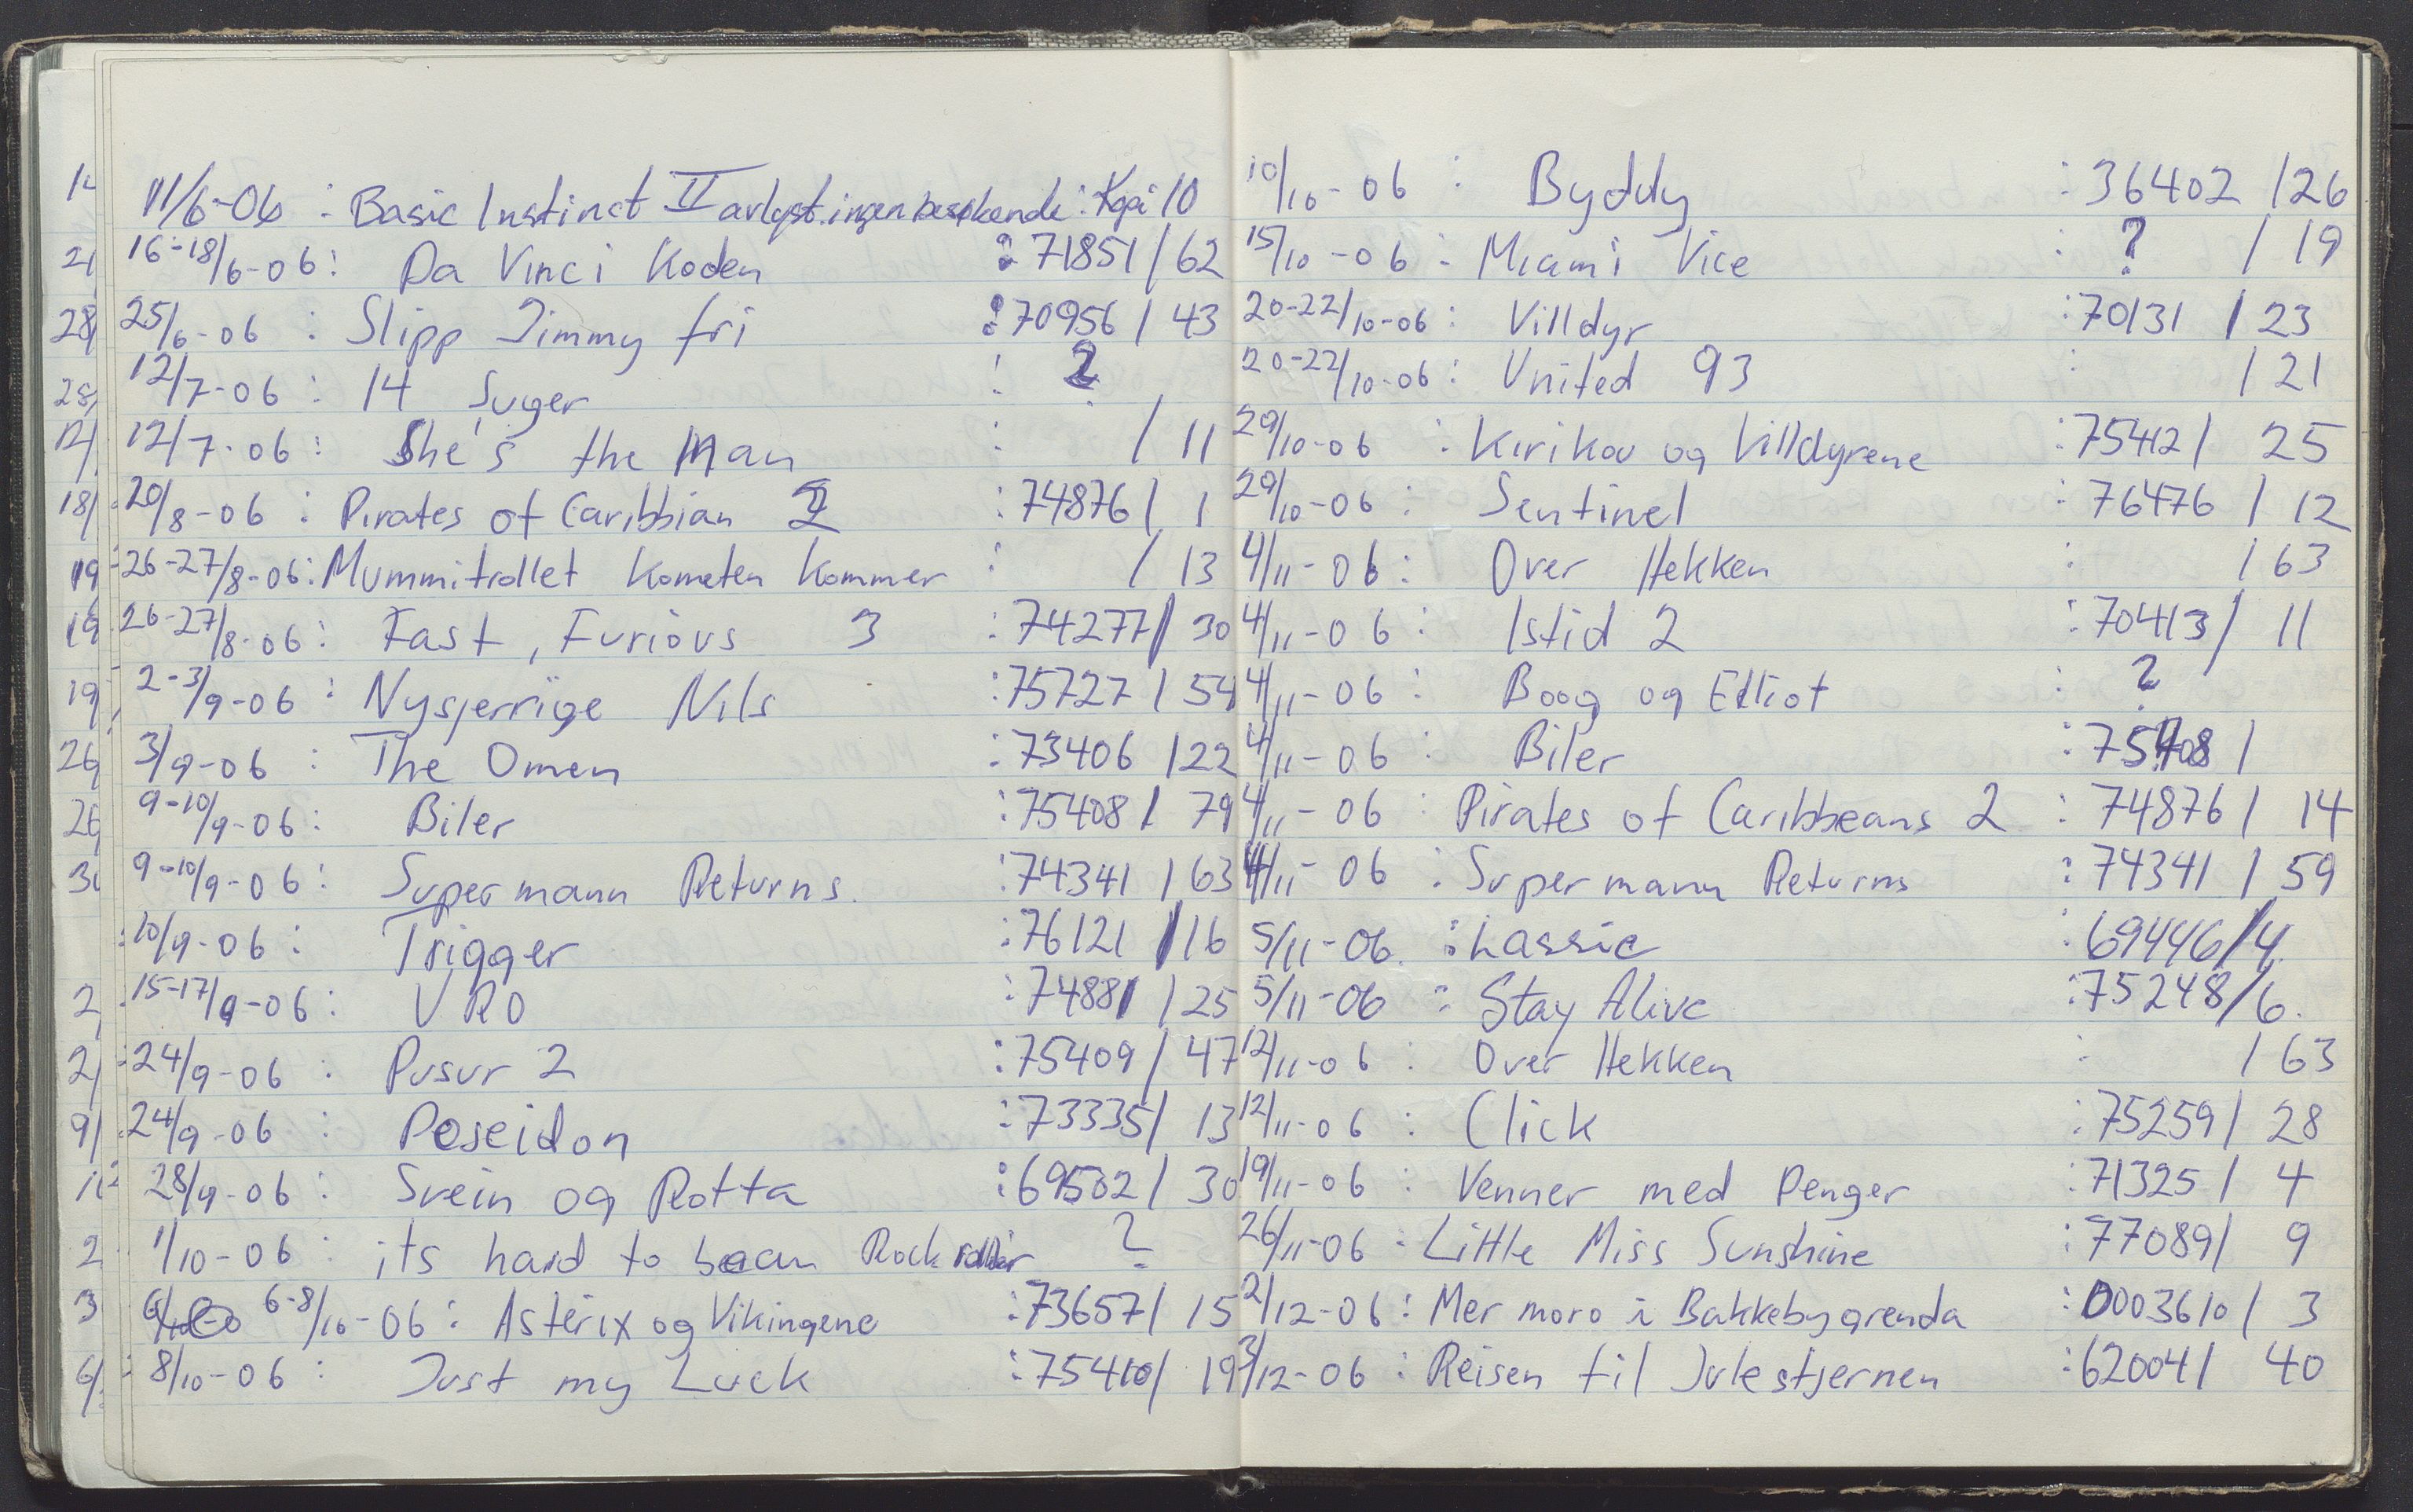 11/6-06 : Basic Instinct II avlyst.ingen besøkende : Kopi 10
16-18/6-06 : Da Vinci Koden : 71851 / 62
25/6-06 : Slipp Jimmy fri : 70956 / 43
12/7-06 : 14 Suger : ?
12/7-06 : She's the Man : / 11
20/8-06 : Pirates of Caribbian 2 : 74876 / 1
26-27/8-06 : Mummitrollet Kometen Kommer : / 13
26-27/8-06 : Fast, Furious 3 : 74277 / 30
2-3/9-06 : Nysjerrige Nils : 75727 / 54
3/9-06 : The Omen : 73406 / 22
9-10/9-06 : Biler : 75408 / 79
9-10/9-06 : Supermann Returns. : 74341 / 63
10/9-06 : Trigger : 76121 / 16
15-17/9-06 : URO : 74881 / 25
24/9-06 : Pusur 2 : 75409 / 47
24/9-06 : Poseidon : 73335 / 13
28/9-06 : Svein og Rotta : 69502 / 30
1/10-06 : its hard to be a Rock ?
6-8/10-06 : Asterix og Vikingene : 73657 / 15
8/10-06 : Just my Luck : 75410 / 19
10/10-06 : Byddy : 36402 / 26
15/10-06 : Miami Vice : ? / 19
20-22/10-06 : Villdyr : 70131 / 23
20-22/10-06 : United 93 : / 21
29/10-06 : Kirikou og Villdyrene : 75412 / 25
29/10-06 : Sentinel : 76476 / 12
4/11-06 : Over Hekken : / 63
4/11-06 : Istid 2 : 70413 / 11
4/11-06 : Boog og Elliot : ?
4/11-06 : Biler : 75408 /
4/11-06 : Pirates of Caribbeans 2 : 74876 / 14
4/11-06 : Supermann Returns : 74341 / 59
5/11-06. : Lassie : 69446 / 4.
5/11-06 : Stay Alive : 75248 / 6.
12/11-06 : Over Hekken : / 63
12/11-06 : Click : 75259 / 28
19/11-06 : Venner med Penger : 71325 / 4
26/11-06 : Little Miss Sunshine : 77089 / 9
2/12-06 : Mer moro i Bakkebygrenda : 0003610 / 3
3/12-06 : Reisen til Julestjernen : 62004 / 40